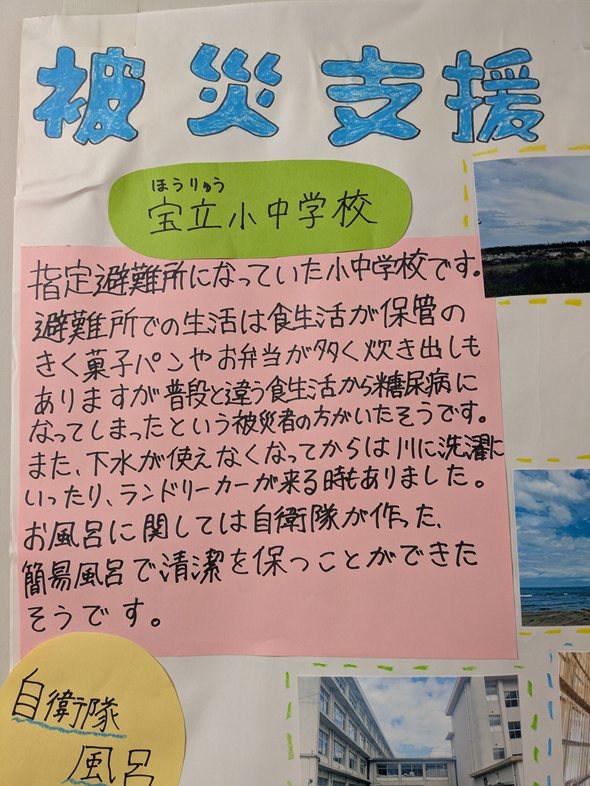 被災支援
ほうりゅう
宝立小中学校
指定避難所になっていた小中学校です。
避難所での生活は食生活が保管の
きく菓子パンやお弁当が多く炊き出しも
ありますが普段と違う食生活から糖尿病に
なってしまったという被災者の方がいたそうです。
また、下水が使えなくなってからは川に洗濯に
いったり、ランドリーカーが来る時もありました。
お風呂に関しては自衛隊が作った、
簡易風呂で清潔を保つことができた
そうです。
自衛隊
風呂